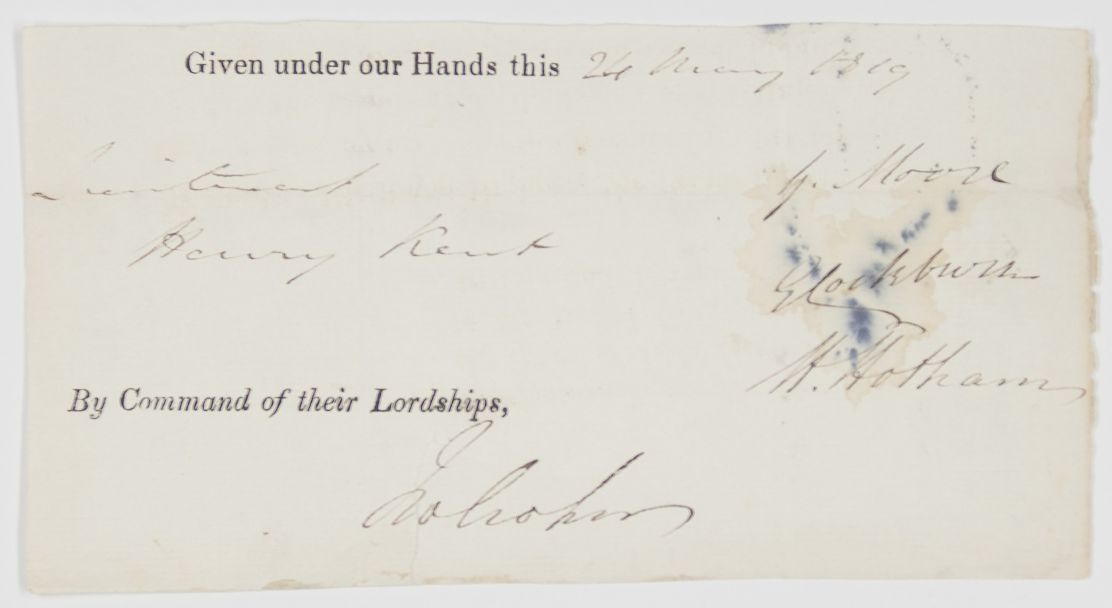 Given under our Hands this 24 May 1819
Lieutenant
G. Moore
Henry Kent
G Cockburn
H. Hotham
By Command of their Lordships,